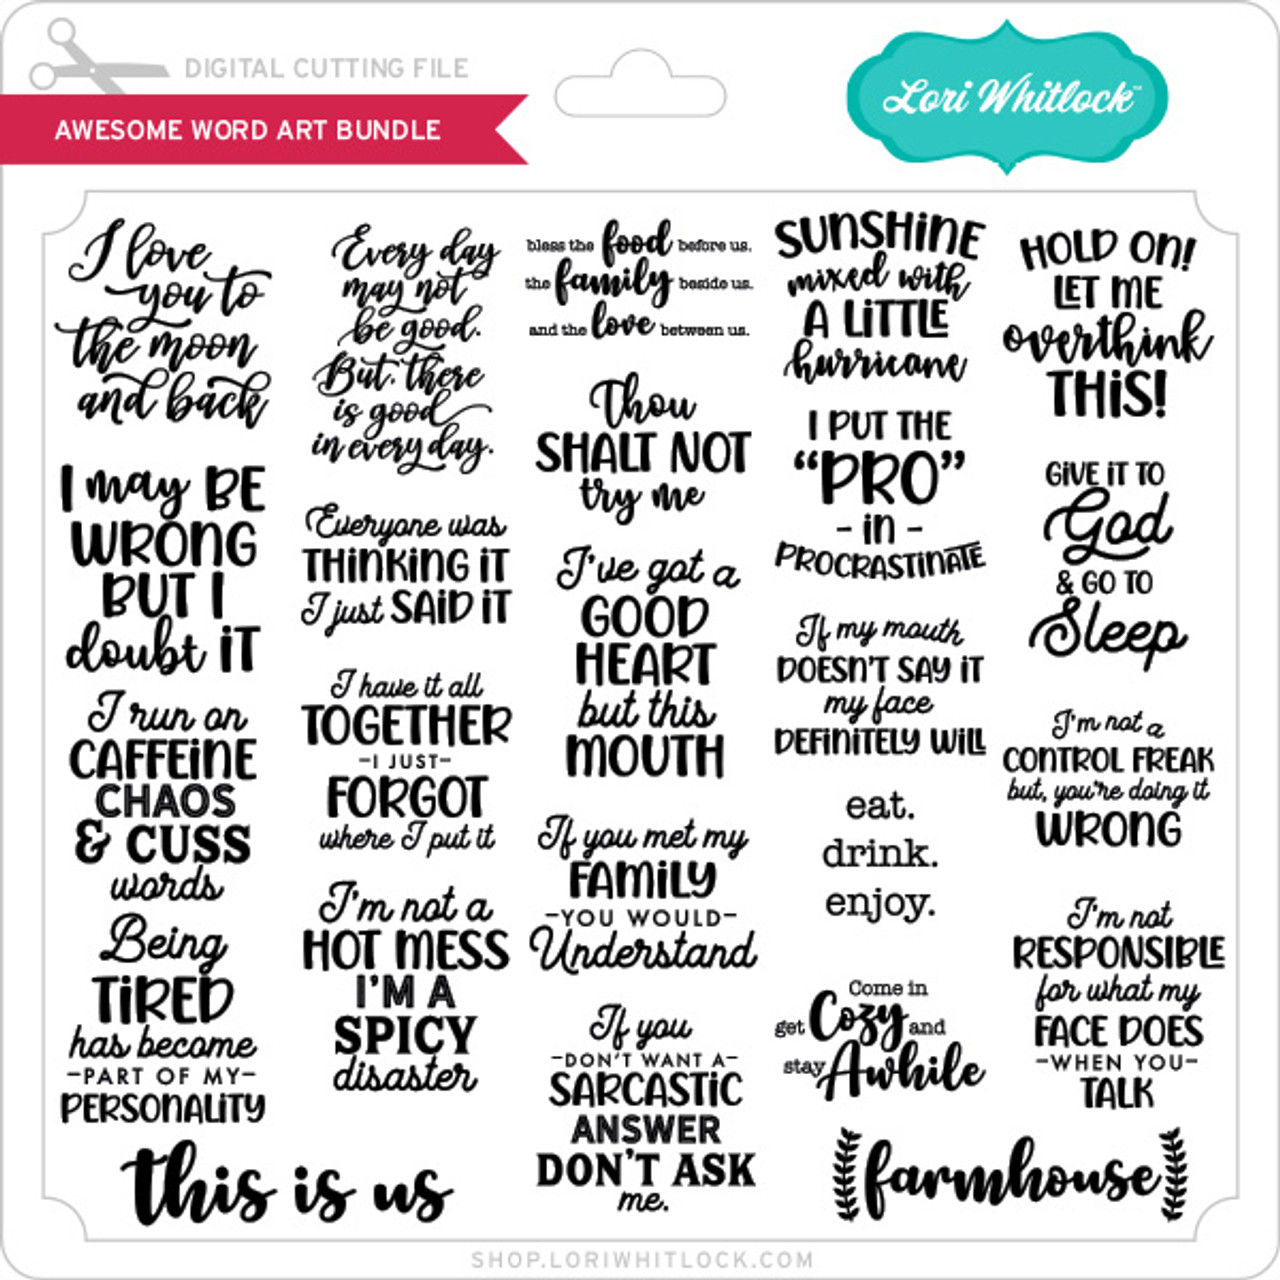 DIGITAL CUTTING FILE
AWESOME WORD ART BUNDLE
Lori Whitlock™
I love
you to
the moon
and back
I may BE
WRONG
BUT I
doubt IT
I run on
CAFFEINE
CHAOS
& CUSS
words
Being
TIRED
has become
-PART OF MY-
PERSONALITY
this is us
Every day
may not
be good.
But, there
is good
in every day.
Everyone was
THINKING IT
I just SAID IT
I have it all
TOGETHER
-I JUST-
FORGOT
where I put it
I'm not a
HOT MESS
I'M A
SPICY
disaster
bless the food before us.
the family beside us.
and the love between us.
Thou
SHALT NOT
try me
I've got a
GOOD
HEART
but this
MOUTH
If you met my
FAMILY
-YOU WOULD-
Understand
If you
-DON'T WANT A-
SARCASTIC
ANSWER
DON'T ASK
me.
SUNSHINE
mixed with
A LITTLE
hurricane
I PUT THE
“PRO”
- in -
PROCRASTINATE
If my mouth
DOESN'T SAY IT
my face
DEFINITELY WILL
eat.
drink.
enjoy.
Come in
get Cozy and
stay Awhile
farmhouse
HOLD ON!
LET ME
overthink
THIS!
GIVE IT TO
God
& GO TO
Sleep
I'm not a
CONTROL FREAK
but, you're doing it
WRONG
I'm not
RESPONSIBLE
for what my
FACE DOES
-WHEN YOU-
TALK
SHOP.LORIWHITLOCK.COM